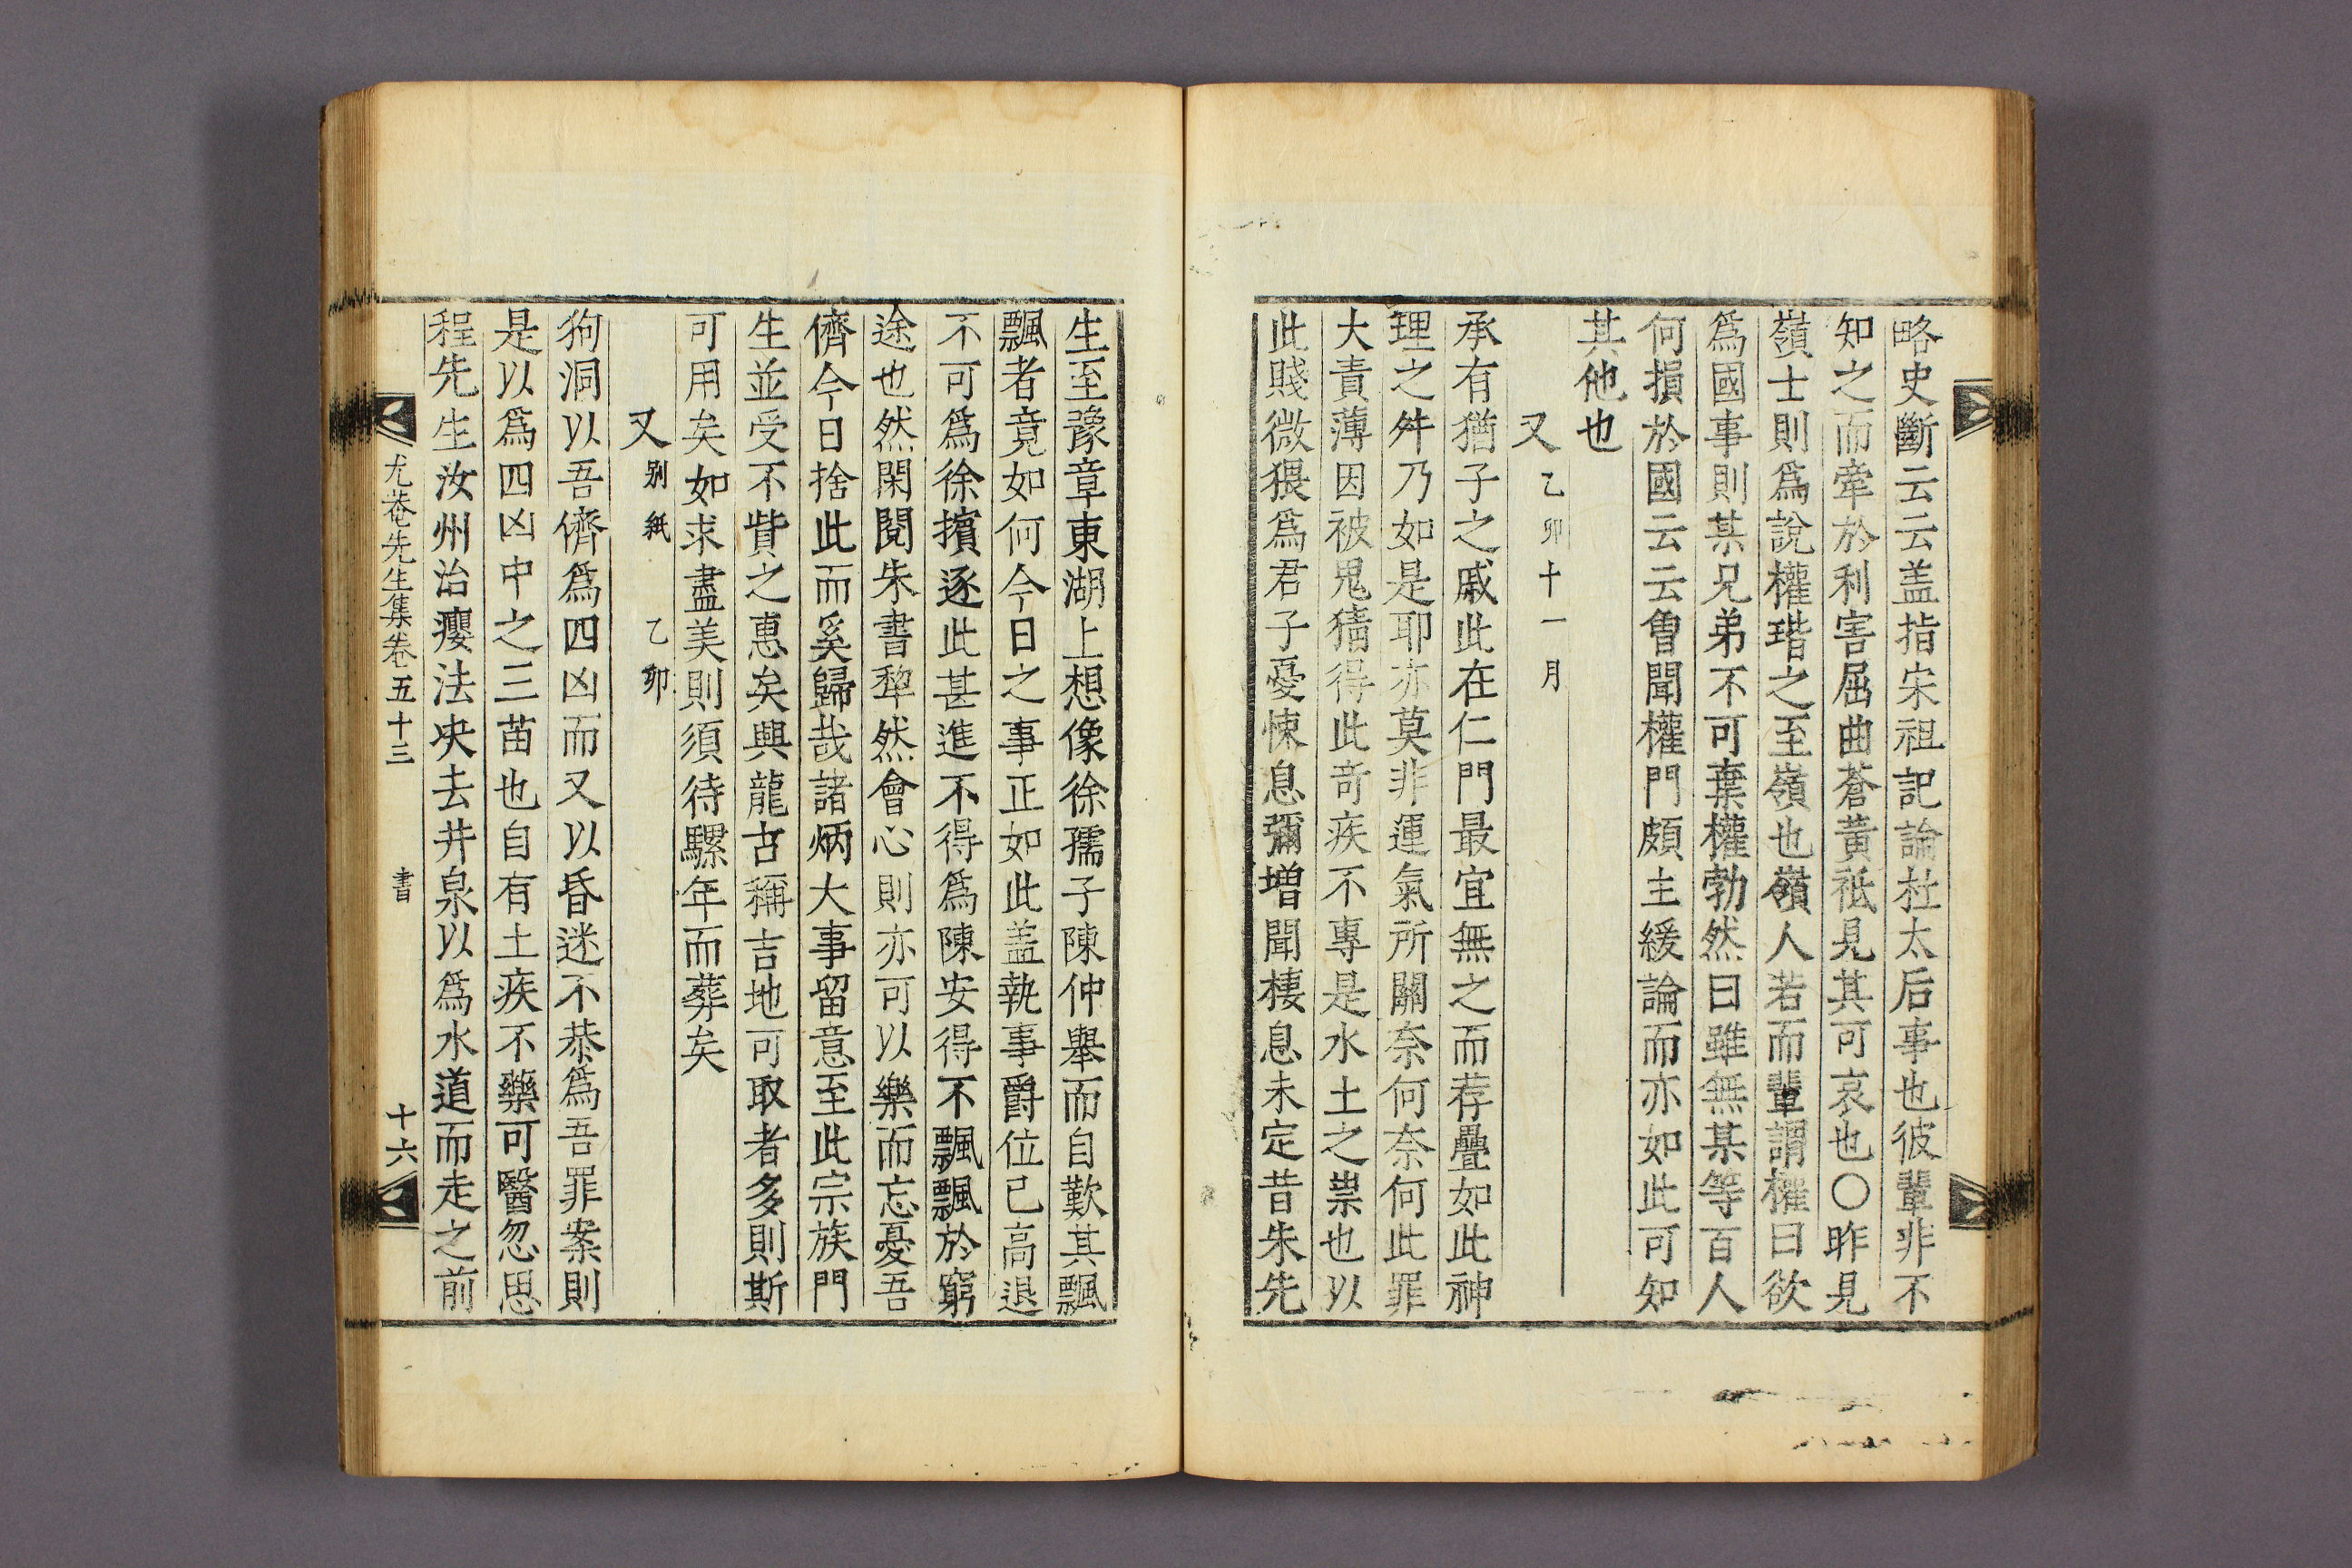 略史斷云云盖指宋祖記論杜太后事也彼輩非不
知之而牽於利害屈曲蒼黃祗見其可哀也○昨見
嶺士則爲說權瑎之至嶺也嶺人若而輩謂權曰欲
爲國事則某兄弟不可棄權勃然曰雖無某等百人
何損於國云云曾聞權門頗主緩論而亦如此可知
其他也
又 乙卯十一月
承有猶子之戚此在仁門最宜無之而荐疊如此神
理之舛乃如是耶亦莫非運氣所關奈何奈何此罪
大責薄因被鬼猜得此奇疾不專是水土之祟也以
此賤微猥爲君子憂悚息彌增聞棲息未定昔朱先
生至豫章東湖上想像徐孺子陳仲擧而自歎其飄
飄者竟如何今日之事正如此盖執事爵位已高退
不可爲徐擯逐此甚進不得爲陳安得不飄飄於窮
途也然閑閱朱書犂然會心則亦可以樂而忘憂吾
儕今日捨此而奚歸哉諸炳大事留意至此宗族門
生並受不貲之惠矣興龍古稱吉地可取者多則斯
可用矣如求盡美則須待騾年而葬矣
又 別紙 乙卯
狗洞以吾儕爲四凶而又以昏迷不恭爲吾罪案則
是以爲四凶中之三苗也自有土疾不藥可醫忽思
程先生汝州治癭法决去井泉以爲水道而走之前
尤菴先生集卷五十三 書 十六